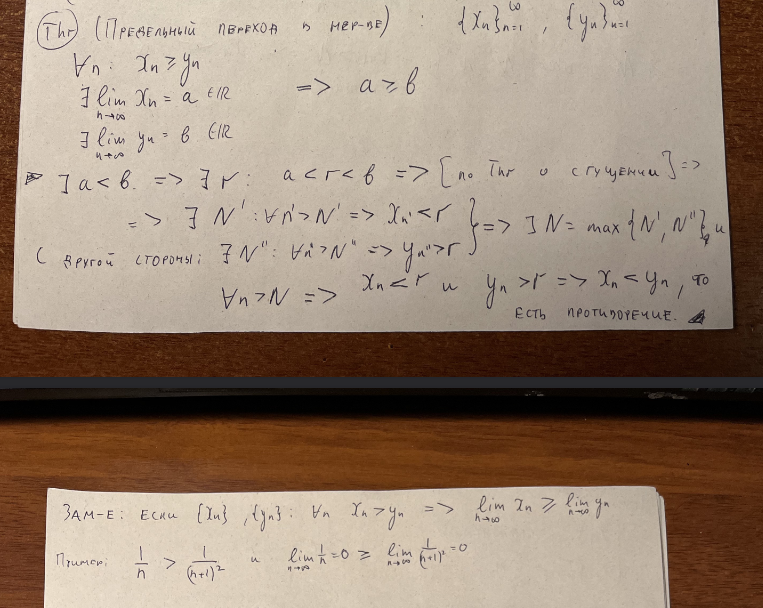 Thr (Предельный переход в нер-ве) : {xₙ}ₙ₌₁^∞ , {yₙ}ₙ₌₁^∞
∀n: xₙ ≥ yₙ
∃ lim_{n→∞} xₙ = a ∈ ℝ => a ≥ b
∃ lim_{n→∞} yₙ = b ∈ ℝ
▷ ] a < b. => ∃ r : a < r < b => [по Thr о сгущении] =>
=> ∃ N' : ∀n' > N' => xₙ' < r } => ∃ N = max {N', N''}, и
С другой стороны: ∃ N'' : ∀n'' > N'' => yₙ'' > r
∀n > N => xₙ < r и yₙ > r => xₙ < yₙ, то
есть противоречие.
Зам-е: Если {xₙ}, {yₙ}: ∀n xₙ > yₙ => lim_{n→∞} xₙ ≥ lim_{n→∞} yₙ
Пример: 1/n > 1/(n+1)² и lim_{n→∞} 1/n = 0 ≥ lim_{n→∞} 1/(n+1)² = 0